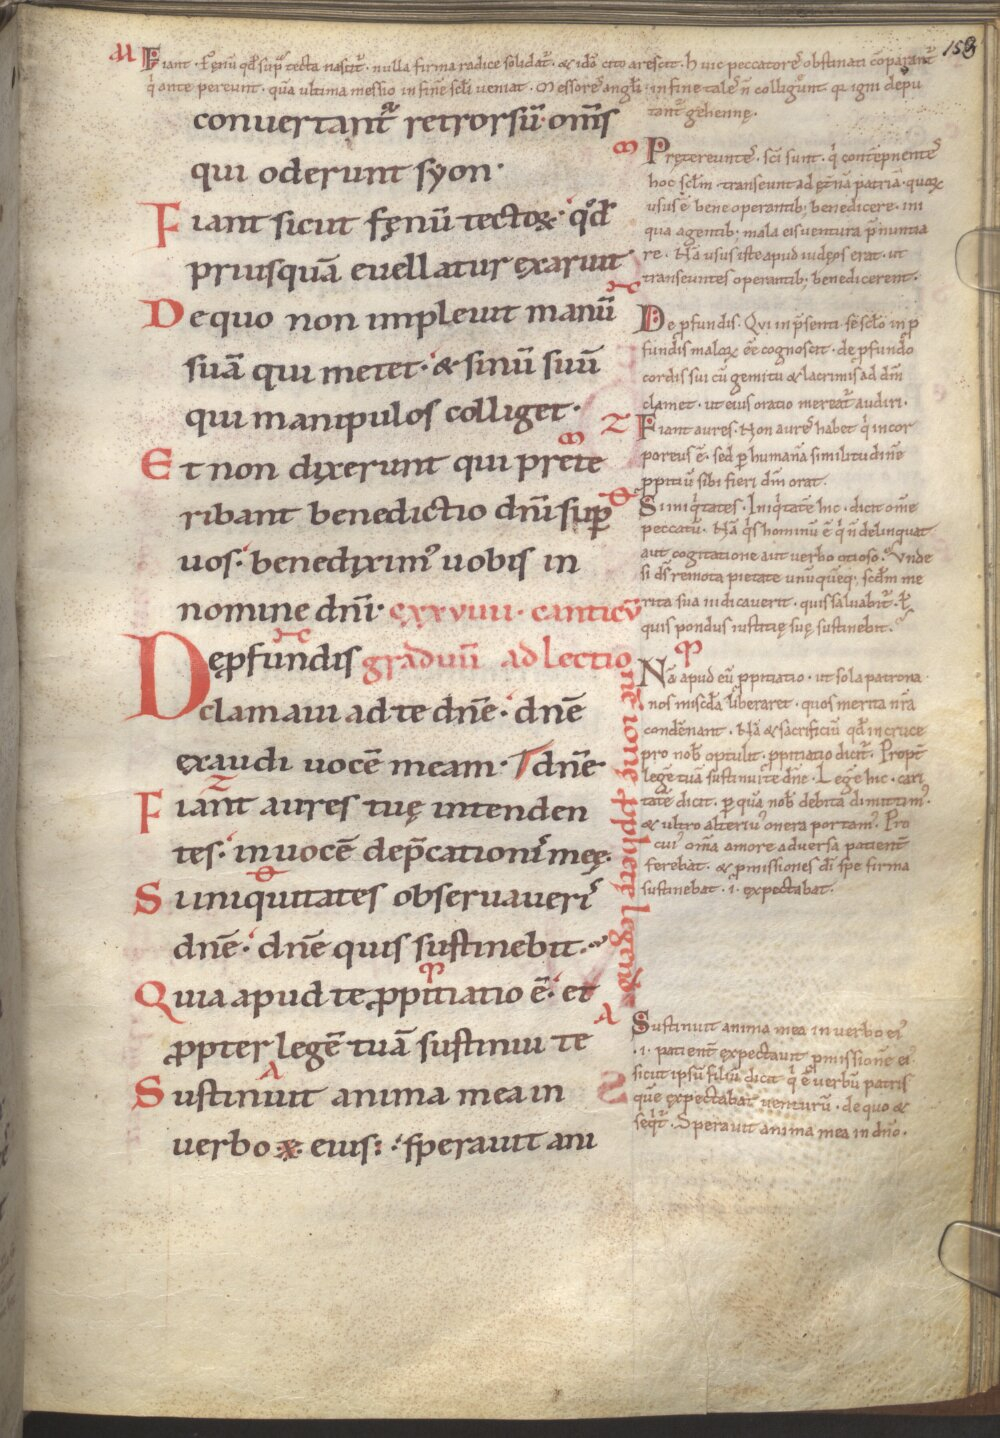 158
Fiant · Fęnū qd̄ sup̄ tecta nascit᷑ · nulla firma radice solidat᷑ · & idō cito arescit · huic peccatoreſ obstinati cōparant᷑
q̇ ante pereunt · quā ultima messio in fine sc̄li veniat · Messoreſ angl̄i in fine taleſ n̄ colligunt · qͥ igni depu
tant᷑ gehennę ·
conuertant᷑ retrorsū · om̄s
qui oderunt syon ·
Fiant sicut fęnū tectoꝝ · qd̄
priusquā euellatur exaruit
De quo non impleuit manū
suā qui metet · & sinū suū
qui manipulos colliget ·
Et non dixerunt qui prete
ribant benedictio dn̄i sup̄
uos · benediximꝰ uobis in
nomine dn̄i · cxxviiii · canticū
De ꝓfundis graduū ad lectio
clamaui ad te dn̄e · dn̄e
exaudi uocē meam · dn̄e
Fiant aures tuę intenden
tes · in uocē dep̄cationiſ meę ·
Si iniquitates obseruaueriſ
dn̄e · dn̄e quis sustinebit ·
Quia apud te ꝓpitiatio ē · et
ꝓpter legē tuā sustinui te
Sustinuit anima mea in
uerbo eius : · sperauit ani
nē ionę ꝓphetę legend
Prętereunteſ · sc̄i sunt · q̇ contēpnenteſ
hoc sc̄lm · transeunt ad ęt̄nā patriā · quoꝝ
usus ē bene operantib; benedicere · ini
qua agentib; mala eis uentura p̄nuntia
re · Nā usus iste apud iudęos erat · ut
transeuntes operantib; benedicerent ·
De ꝓfundis · Qui in p̄senti sc̄lo in ꝓ
fundis maloꝝ eē cognoscit · de ꝓfundo
cordis sui cū gemitu & lacrimis ad dn̄m
clamet · ut eius oratio mereat᷑ audiri ·
Fiant aures · Non aureſ habet q̇ incor
poreus ē · sed ꝑ humanā similitudinē
ꝓpitiū sibi fieri dn̄m orat ·
Si iniq̇tates · Iniq̇tatē hic · dicit om̄e
peccatū · Nā q̇s hominū ē q̇ n̄ delinquat
aut cogitatione aut uerbo otioso · Vnde
si dſ̄ remota pietate unūquēq; scd̄m me
rita sua iudicauerit · quis saluabit᷑ · ł
quis pondus iustitię suę sustinebit ·
Nā apud eū ꝓpitiatio · ut sola patrona
nos mis̄cdia liberaret · quos merita nr̄a
condēnant · Nā & sacrificiū qd̄ in cruce
pro nob̄ optulit · ꝓpitiatio dicit᷑ · Propt̄
legē tuā sustinui te dn̄e · Legē hic · cari
tatē dicit · ꝑ quā nob̄ debita dimittimꝰ ·
& ultro alteriuſ onera portamꝰ · Pro
cuiꝰ om̄a amore aduersa patient̄
ferebat · & ꝓmissiones dī spe firma
sustinebat · i · expectabat ·
Sustinuit anima mea in uerbo eiꝰ
· i · patient̄ expectauit ꝓmissionē eiꝰ
sicut ipsū filiū dicit q̇ ē uerbū patris
quē expectabat uenturū · de quo &
seq̇t᷑ · Sperauit anima mea in dn̄o ·